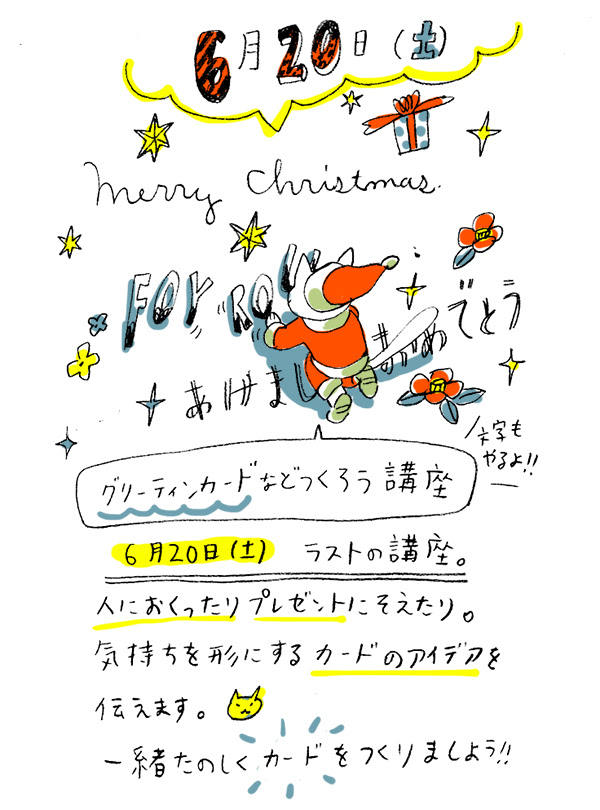 6月20日(土)
Merry Christmas.
FOY YOU
あけまし おめでとう
文字も
やるよ!!
グリーティンカードなどつくろう講座
6月20日(土) ラストの講座。
人におくったりプレゼントにそえたり。
気持ちを形にするカードのアイデアを
伝えます。
一緒たのしくカードをつくりましよう!!